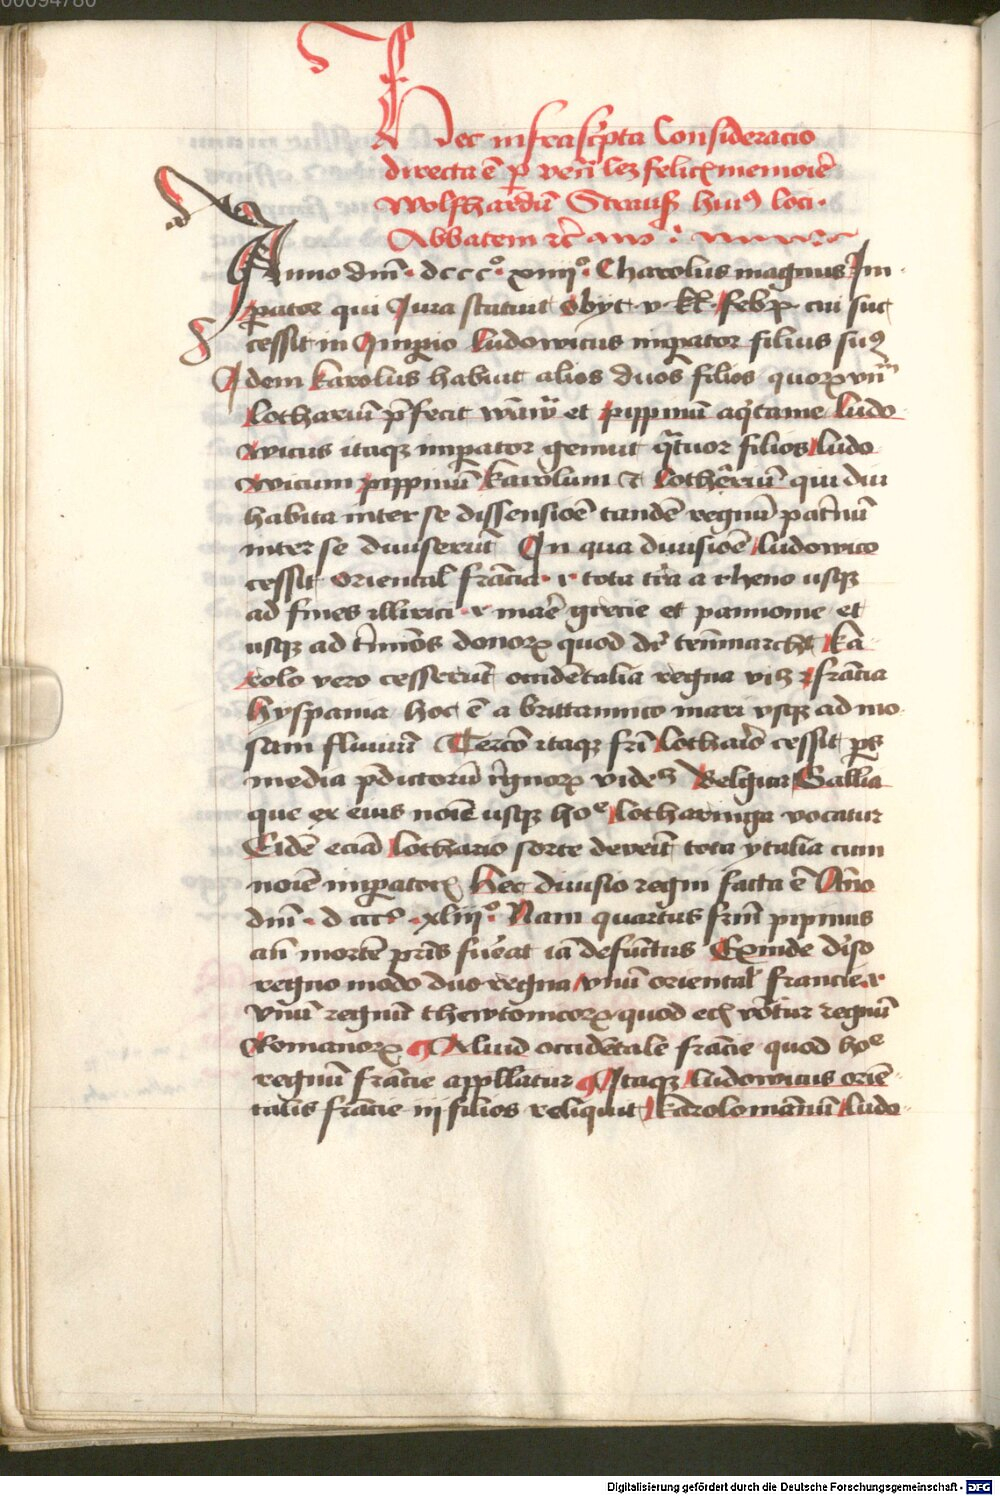 00094780
Hec infrascripta Consideracio
directa ē p veñ lez felicꝭ memorie
Wolfhardū Strauß huiꝰ loci
Abbatem ꝛc̄
Anno dm̄ · dccc° · xiiij° · Charolus magnus Im
pator qui Jura statuit obyt · v · kł · febꝛ · cui suc
cessit in Imꝑio Ludowicus imꝑator filius suꝰ
Idem karolus habuit alios duos filios quoꝝ vnū
lothariū p̄fecit et pippinū aq̇tanie ludo
wicus itaqꝫ imꝑator genuit qᵃtuor filios ludo
wicum pippinū karolum ⁊ lotheriū qui diu
habita inter se dissensiōe tandē regnū pat̄nū
inter se diuiserūt In qua diuisiōe ludowico
cessit oriental francia · r tota tr̄a a rheno usqꝫ
ad fines illirici · r mar̄e grecie et pannonie et
usqꝫ ad t̄minōs donoꝝ quod dr̄ tenmarch ka
rolo vero cesserūt occidentalia regna vꝫ francia
hyspania hoc ē a brittannico mari vsqꝫ ad mo
sam fluuiū Tercō itaqꝫ fr̄i lothario cessit ꝑs
media p̄dictorū r̄gnoꝝ videꝫ Belgica Gallia
que ex eius noīe usqꝫ hoᵉ lotharinga vocatur
Eidē eciā lothario sorte deveīt tota ytalia cum
noīe imꝑatorꝭ Hec diuisio regni facta ē Anno
dm̄ · dccc° · xliij° · Nam quartus frm̄ pipinus
an̄ mortē pr̄is fuerat iā defunctus Exinde diuiso
regno modo duo regna vnū oriental francie · r
vnū regnū thewtonicoꝝ quod ec̄ vocatur regnū
Romanoꝝ Aliud occidētale francie quod hoᵉ
regnū francie appllatur Itaqꝫ ludowicus oriē
talis francie iij filios reliquit karolomannū ludo
Digitalisierung gefördert durch die Deutsche Forschungsgemeinschaft - DFG